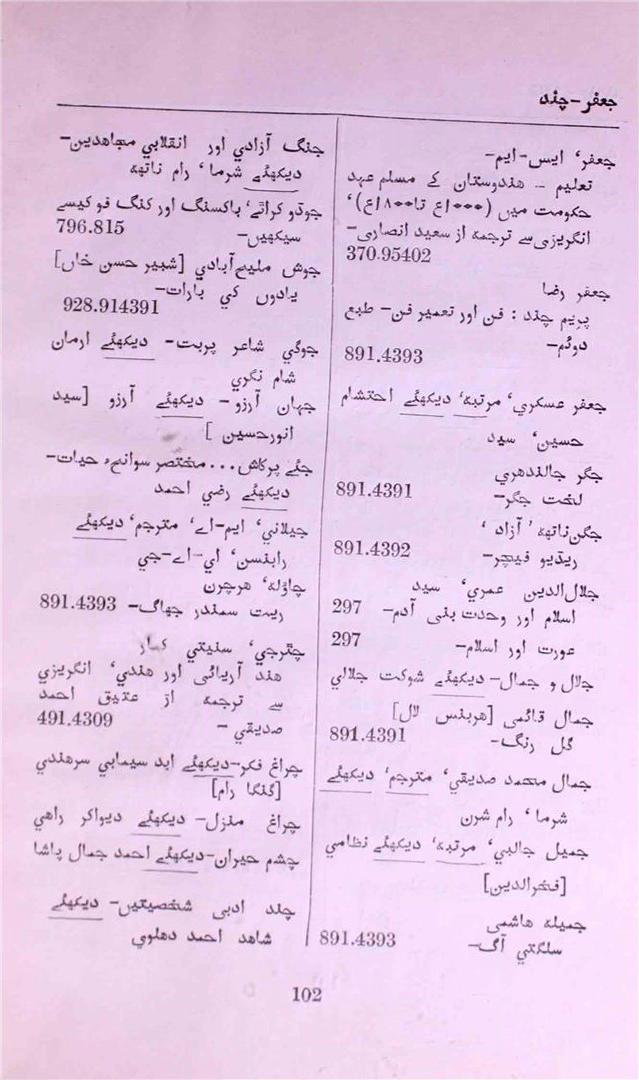 جعفر-چند
جعفر، ایس-ایم-
تعلیم - هندوستان کے مسلم عہد
حکومت میں (۱۰۰۰ع تا ۱۸۰۰ع)،
انگریزی سے ترجمہ از سعید انصاری-
370.95402
جعفر رضا
پریم چند : فن اور تعمیر فن- طبع
دوئم-
891.4393
جعفر عسکري، مرتبہ، دیکھئے احتشام
حسین، سید
جگر جالندھري
لخت جگر-
891.4391
جگن ناتھ، آزاد،
ریڈیو فیچر-
891.4392
جلال الدین عمري، سید
اسلام اور وحدت بنی آدم- 297
عورت اور اسلام- 297
جلال و جمال- دیکھئے شوکت جلالي
جمال قائمی [هربنس لال]
گل رنگ-
891.4391
جمال محمد صدیقي، مترجم، دیکھئے
شرما، رام شرن
جمیل جالبي، مرتبہ، دیکھئے نظامي
[فخرالدین]
جمیلہ هاشمی
سلگتي آگ-
891.4393
جنگ آزادي اور انقلابي مجاهدین-
دیکھئے شرما، رام ناتھ
جوڈو کراٹے، باکسنگ اور کنگ فو کیسے
سیکھیں- 796.815
جوش ملیح آبادي [شبیر حسن خاں]
یادوں کي بارات-
928.914391
جوگي شاعر پربت- دیکھئے ارمان
شام نگري
جہان آرزو- دیکھئے آرزو [سید
انور حسین]
جئے پرکاش... مختصر سوانح حیات-
دیکھئے رضي احمد
جیلاني، ایم-اے، مترجم، دیکھئے
رابنسن، اي-اے-جي
چاؤلہ، هرچرن
ریت سمندر جھاگ- 891.4393
چٹرجي، سنیتي کمار
هند آریائی اور هندي، انگریزي
سے ترجمہ از عتیق احمد
صدیقي- 491.4309
چراغ فکر- دیکھئے ابد سیمابي سرهندي
[گنگا رام]
چراغ منزل- دیکھئے دیواکر راهي
چشم حیران- دیکھئے احمد جمال پاشا
چند ادبی شخصیتیں- دیکھئے
شاهد احمد دهلوي
102